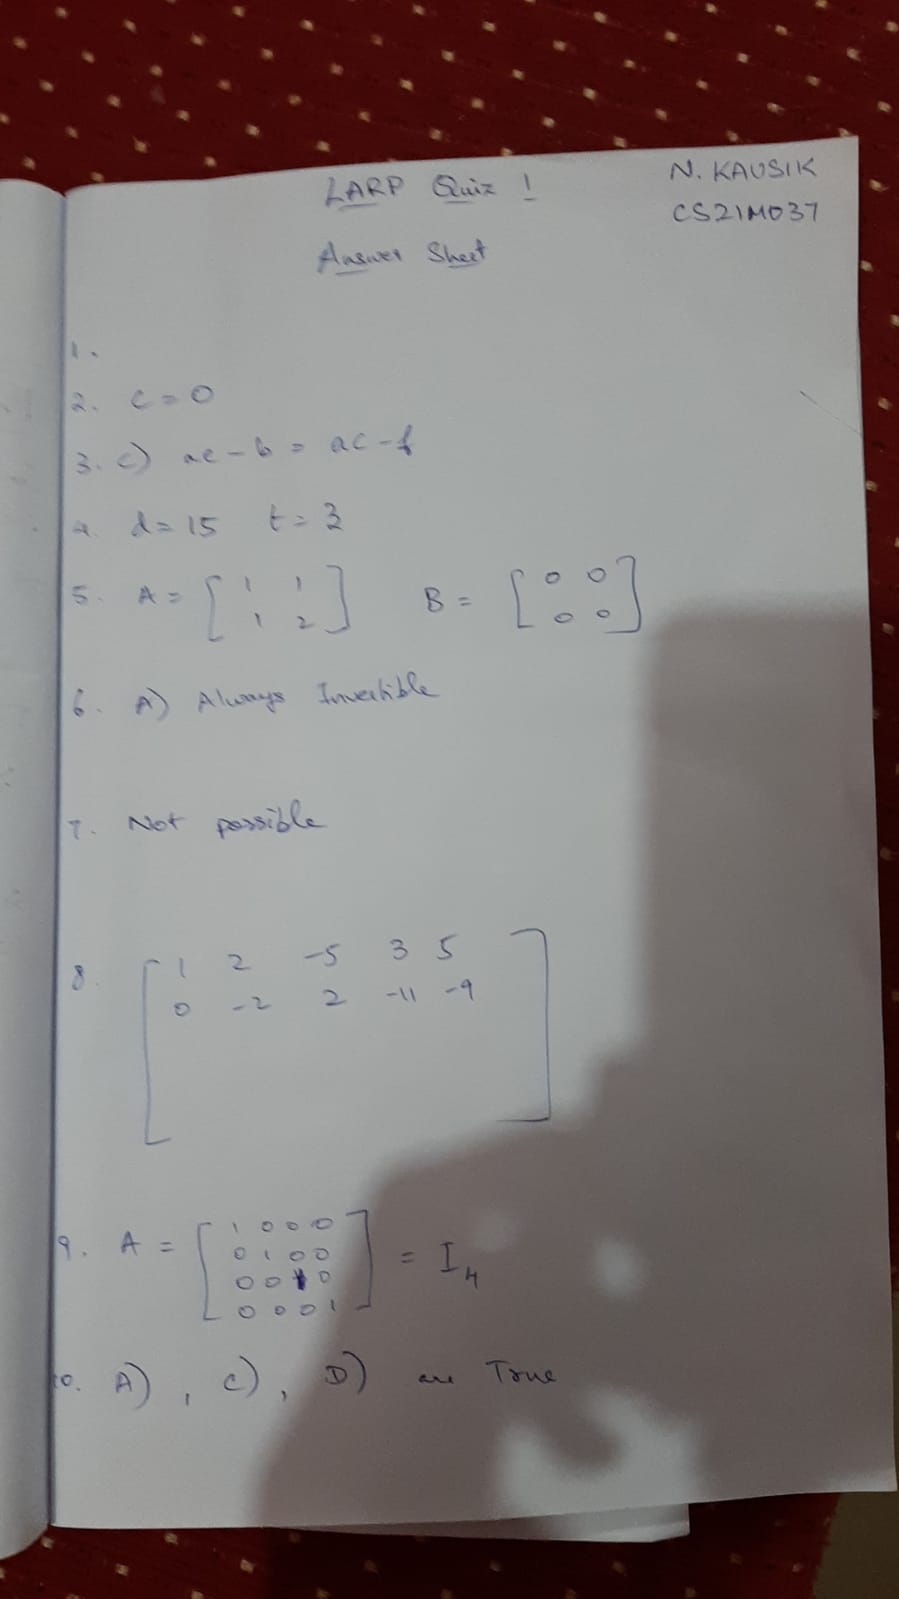 LARP Quiz 1
N. KAUSIK
CS21M037
Answer Sheet
1.
2. C = 0
3. c) ae - b = ac - f
4. d = 15 t = 3
5. A = [ 1 1
1 2 ] B = [ 0 0
0 0 ]
6. A) Always Invertible
7. Not possible
8. [ 1 2 -5 3 5
0 -2 2 -11 -9 ]
9. A = [ 1 0 0 0
0 1 0 0
0 0 1 0
0 0 0 1 ] = I4
10. A) , C) , D) are True